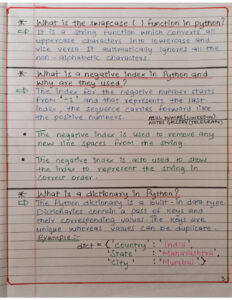 * What is the swapcase ( ) function in python?
⇒ It is a string function which converts all
uppercase characters into lowercase and
vice versa. It automatically ignores all the
non-alphabetic characters.
* What is a negative index in Python and
why are they used?
⇒ The index for the negative number starts
from '-1' and that represents the last
index, the sequence carries forward like
the positive numbers.
NOTES GALLERY (TELEGRAM)
• The negative index is used to remove any
new line spaces from the string.
• The negative index is also used to show
the index to represent the string in
correct order.
* What is a dictionary in Python?
⇒ The Python dictionary is a built-in data type.
Dictionaries contain a pair of keys and
their corresponding values. The keys are
unique whereas values can be duplicate.
Example :-
dict = {'Country' : 'India'
'State' : 'Maharashtra',
'City' : 'Mumbai'}